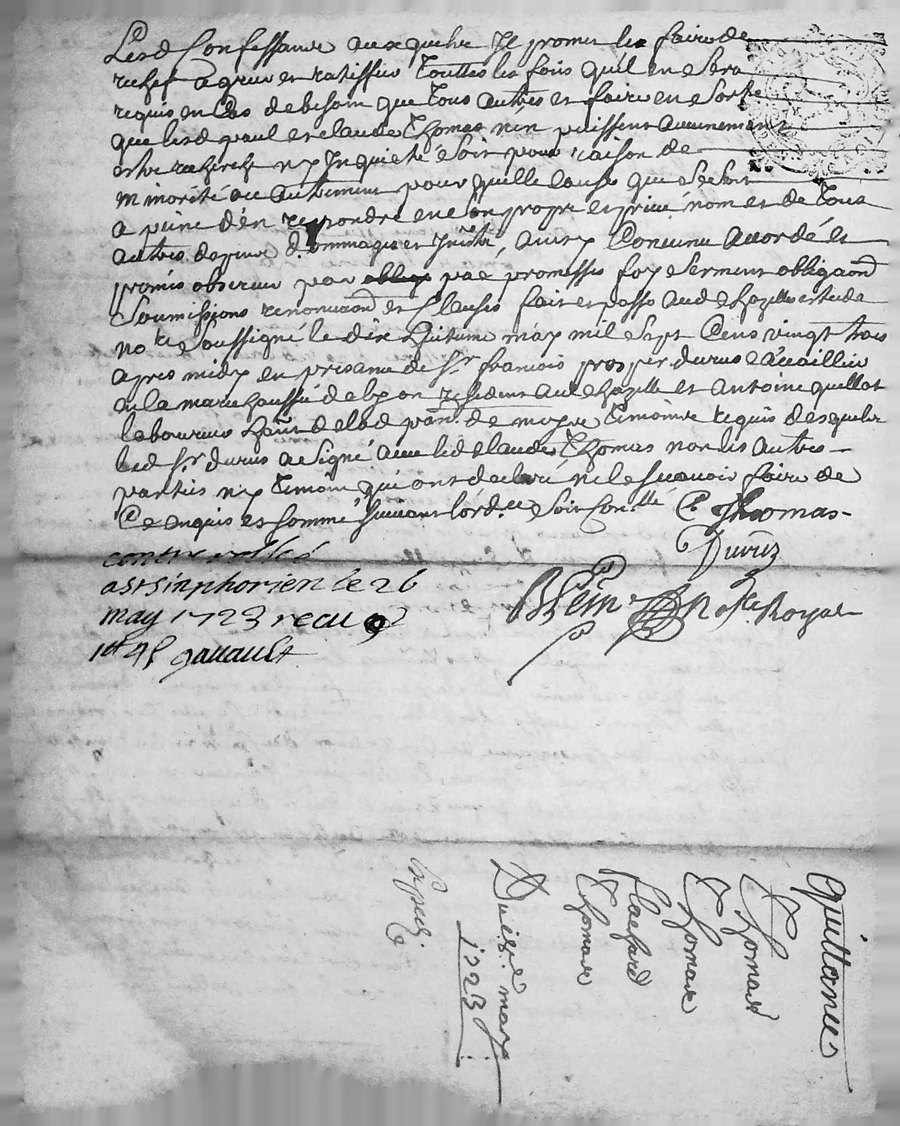 Lesd Confessaire ausquels Il promet les faire de
rechef agreer et ratiffier touttes les fois quil en sera
requis en Cas de besoin que tous autres et faire en sorte
que lesd paul et claude Thomas nen puissent aucunement
estre recherché ny Inquieté soit pour raison de
minorité ou autrement pour quelle cause que se soit
a peine d'en repondre en son propre et privé nom et de tous
autres depens dommages et Intheré, ainsy Convenu accordé et
promis observer par par promesses foy serment obligaon
Soumissions renonciaon et Clauses fait et passé aud
no re Soussigné le dix huitieme may mil sept Cens vingt trois
apres midy en presance de Sr françois prosper durus Cavaillier
en la marechaussé de lyon residant aud et antoine quillot
laboureur de lad parr. de temoins requis desquels
led Sr durus a signé avec led claude Thomas non les autres
parties ny temoin qui ont declaré ne le scavoir faire de
Ce enquis et sommé suivant lord.ce soit Con.llé C. Thomas
Duruz
contrerollé
a St sinphorien le 26
may 1723 receu
gavault
No.re Royal
Quittance
Thomas
Thomas
Thomas
Du 18e may
1723